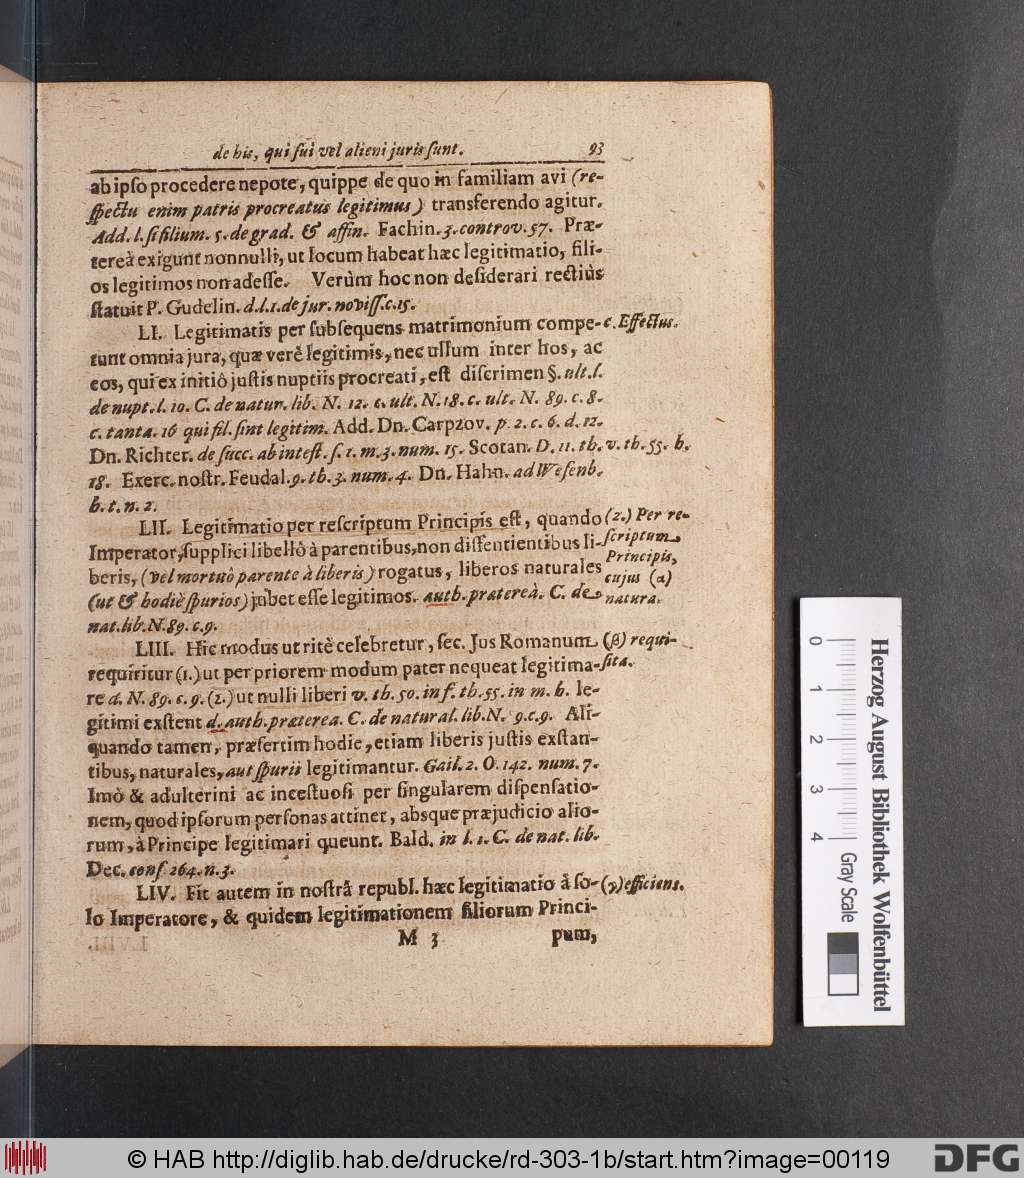 de his, qui sui vel alieni juris sunt. 93
ab ipso procedere nepote, quippe de quo in familiam avi (re-
spectu enim patris procreatus legitimus) transferendo agitur.
Add. l. si filium. 5. de grad. & affin. Fachin. 3. controv. 57. Præ-
tereà exigunt nonnulli, ut locum habeat hæc legitimatio, fili-
os legitimos non adesse. Verùm hoc non desiderari rectiùs
statuit P. Gudelin. d. l. 1. de jur. noviss. c. 15.
LI. Legitimatis per subsequens matrimonium compe- c. Effectus.
tunt omnia jura, quæ verè legitimis, nec ullum inter hos, ac
eos, qui ex initiô justis nuptiis procreati, est discrimen §. ult. l.
de nupt. l. 10. C. de natur. lib. N. 12. c. ult. N. 18. c. ult. N. 89. c. 8.
c. tanta. 16 qui fil. sint legitim. Add. Dn. Carpzov. p. 2. c. 6. d. 12.
Dn. Richter. de succ. ab intest. s. 1. m. 3. num. 15. Scotan. D. 11. th. v. th. 55. h.
18. Exerc. nostr. Feudal. 9. th. 3. num. 4. Dn. Hahn. ad Wesenb.
h. t. n. 2.
LII. Legitimatio per rescriptum Principis est, quando (2.) Per re-
Imperator, supplici libellô à parentibus, non dissentientibus li- scriptum
Principis,
beris, (vel mortuô parente à liberis) rogatus, liberos naturales cujus (α)
(ut & hodiè spurios) jubet esse legitimos. auth. præterea. C. de natura.
nat. lib. N. 89. c. 9.
LIII. Hic modus ut ritè celebretur, sec. Jus Romanum (β) requi-
requiritur (1.) ut per priorem modum pater nequeat legitima- sita.
re d. N. 89. c. 9. (2.) ut nulli liberi v. th. 50. inf. th. 55. in m. h. le-
gitimi exstent d. auth. præterea. C. de natural. lib. N. 9. c. 9. Ali-
quando tamen, præsertim hodie, etiam liberis justis exstan-
tibus, naturales, aut spurii legitimantur. Gail. 2. O. 142. num. 7.
Imò & adulterini ac incestuosi per singularem dispensatio-
nem, quod ipsorum personas attinet, absque præjudicio alio-
rum, à Principe legitimari queunt. Bald. in l. 1. C. de nat. lib.
Dec. conf. 264. n. 3.
LIV. Fit autem in nostrâ republ. hæc legitimatio à so- (γ) efficiens.
lo Imperatore, & quidem legitimationem filiorum Princi-
M 3 pum,
0 1 2 3 4 Gray Scale
Herzog August Bibliothek Wolfenbüttel
© HAB http://diglib.hab.de/drucke/rd-303-1b/start.htm?image=00119
DFG